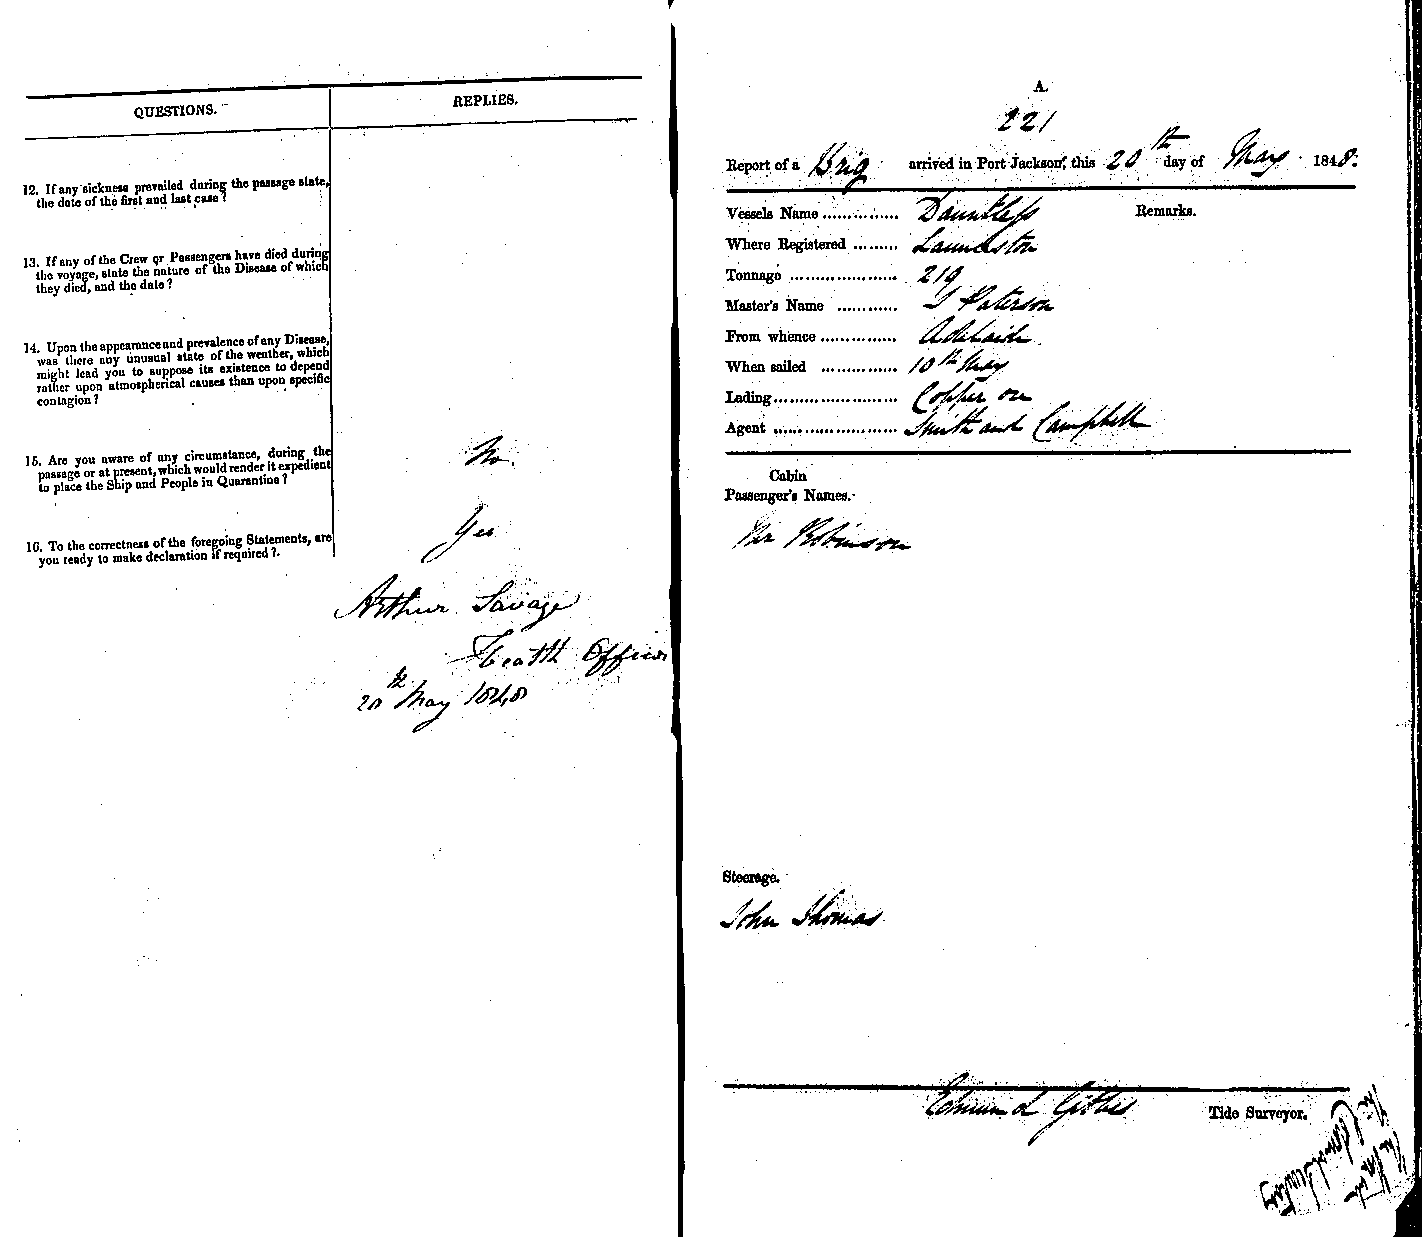 QUESTIONS.
REPLIES.
12. If any sickness prevailed during the passage state,
the date of the first and last case?
13. If any of the Crew or Passengers have died during
the voyage, state the nature of the Disease of which
they died, and the date?
14. Upon the appearance and prevalence of any Disease,
was there any unusual state of the weather, which
might lead you to suppose its existence to depend
rather upon atmospherical causes than upon specific
contagion?
15. Are you aware of any circumstance, during the
passage or at present, which would render it expedient
to place the Ship and People in Quarantine?
No.
16. To the correctness of the foregoing Statements, are
you ready to make declaration if required?
Yes
Arthur Savage
Health Officer
20th May 1848
A.
221
Report of a Brig arrived in Port Jackson, this 20th day of May 1848.
Vessels Name ............... Dauntless
Remarks.
Where Registered ......... Launceston
Tonnage .................... 219
Master's Name ............ J Paterson
From whence ............... Adelaide
When sailed ............... 10th May
Lading........................ Copper ore
Agent ........................ Smith and Campbell
Cabin
Passenger's Names.
Mr Robinson
Steerage.
John Thomas
Edmund Gibbes
Tide Surveyor.